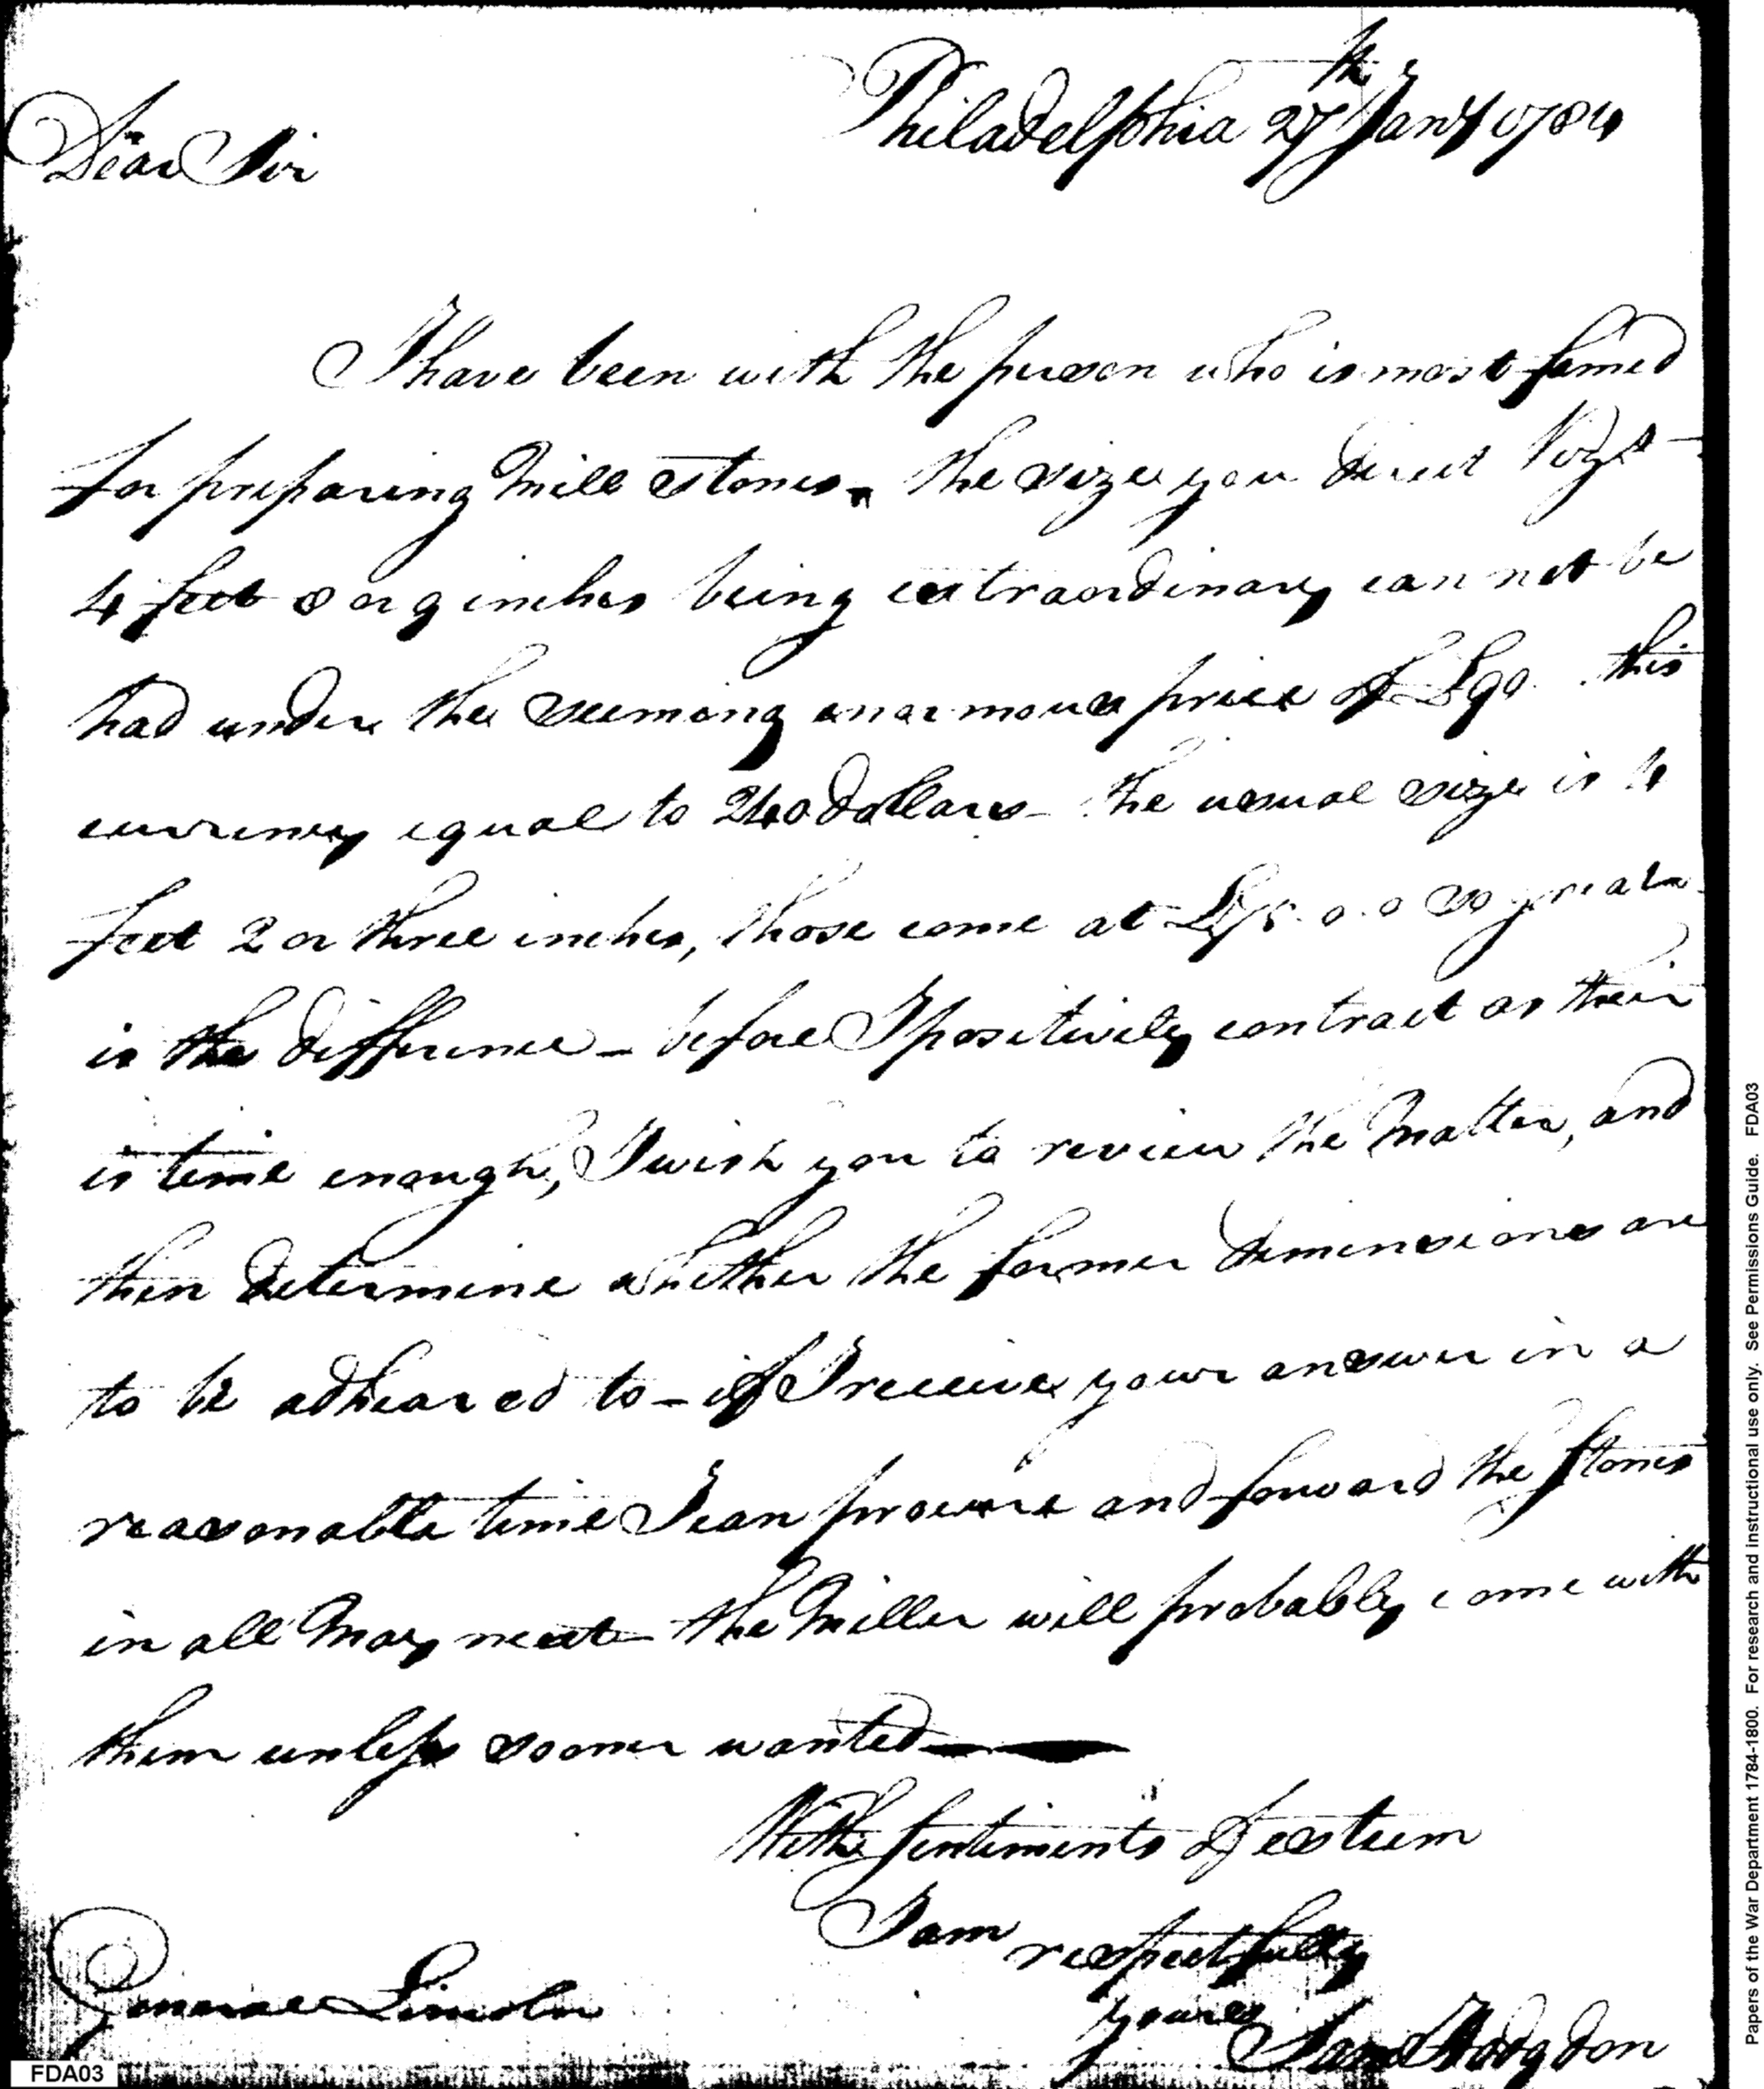 Philadelphia 27th Jany 1784
Dear Sir
I have been with the person who is most famed
for preparing Mill stones. the size you direct Vizt
4 feet 8 or 9 inches being extraordinary can not be
had under the seeming enormous price of £90 this
currency equal to 240 dollars - the usual size is 4
feet 2 or three inches, those come at £75.0.0 so great
is the difference - before I positively contract as their
is time enough, I wish you to review the Matter, and
then determine whether the former dimensions are
to be adheared to - if I receive your answer in a
reasonable time I can procure and forward the Stones
in all May next - the Miller will probably come with
them unless sooner wanted
With Sentiments of esteem
I am respectfully
yours
General Lincoln
Saml Hodgdon
FDA03
Papers of the War Department 1784-1800. For research and instructional use only. See Permissions Guide. FDA03